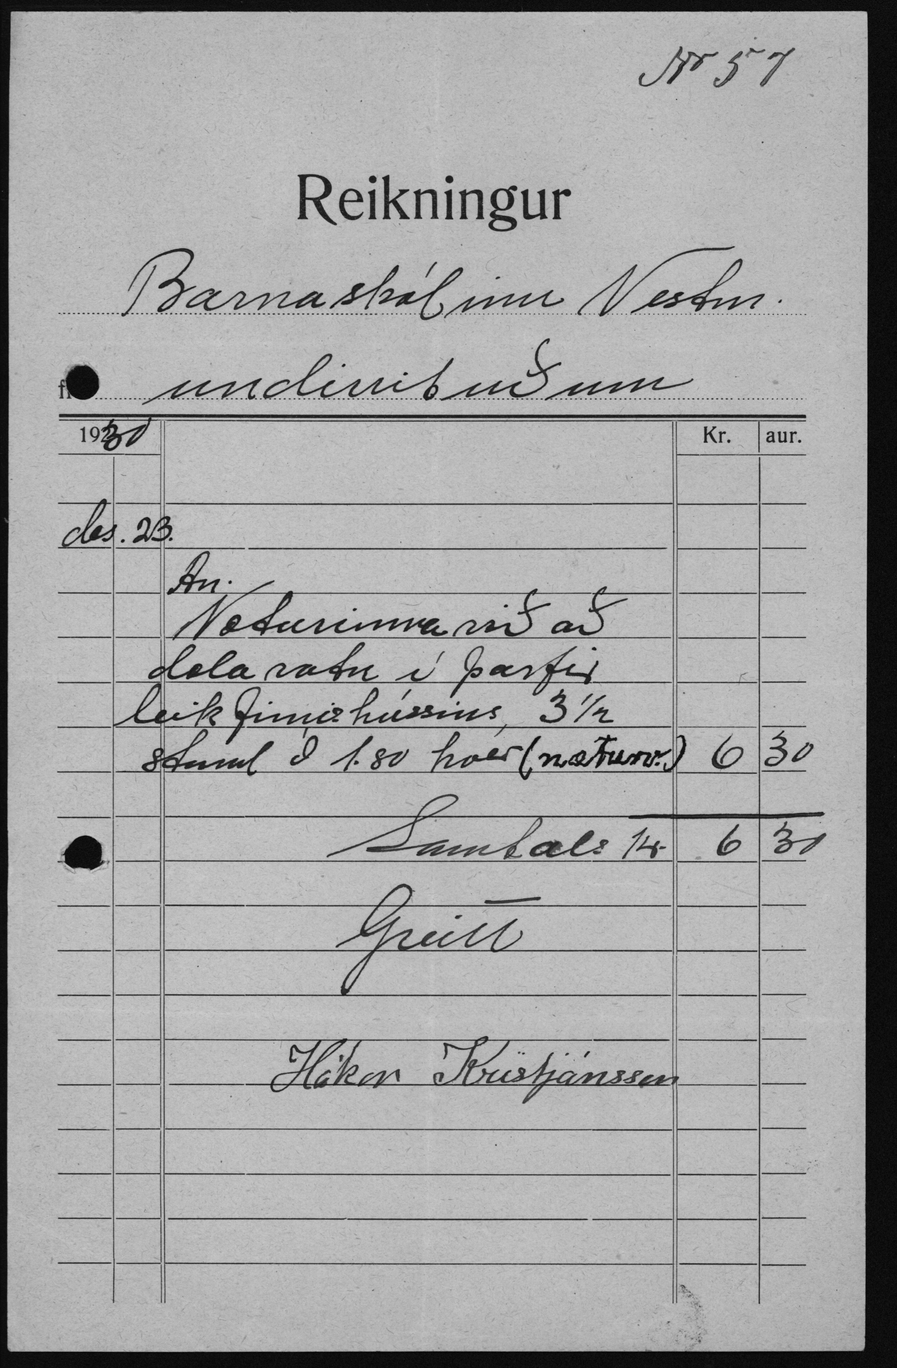 Nr 57
Reikningur
Barnaskólinn Vestm.
undirrituðum
1930 Kr. aur.
des. 23.
An.
Næturvinna við að
dæla vatn í þarfir
leikfimishússins, 3 1/2
stund á 1.80 hver (næturv.) 6 30
Samtals kr 6 30
Greitt
Hákon Kristjánsson